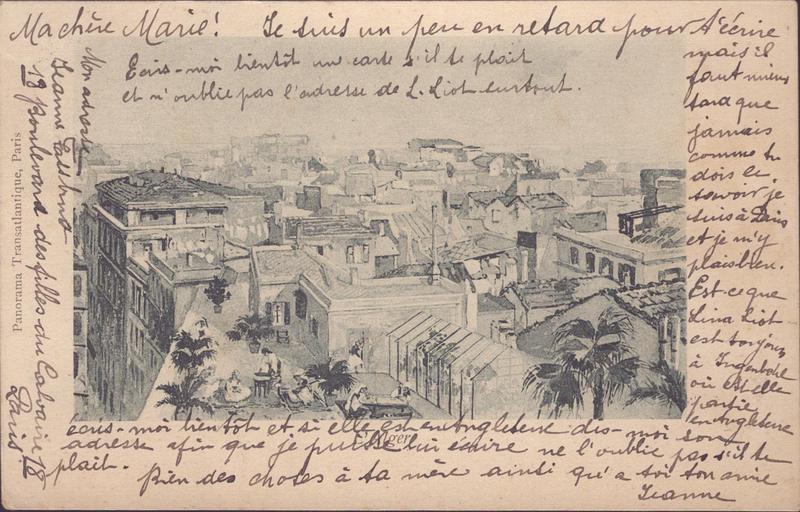 Ma chère Marie! Je suis un peu en retard pour t'écrire
mais il
faut mieux
tard que
jamais
comme tu
dois le
savoir je
suis à Paris
et je m'y
plais bien.
Est-ce que
Lina Liot
est toujours
à Ingenbohl
où est elle
partie
en Angleterre
écris-moi bientôt et si elle est en Angleterre dis-moi son
adresse afin que je puisse lui écrire ne l'oublie pas s'il te
plait.
Bien des choses à ta mère ainsi qu'a toi ton amie
Jeanne
Ecris-moi bientôt une carte s'il te plait
et n'oublie pas l'adresse de L. Liot surtout.
Mon adresse
Jeanne
19 Boulevard des filles du Calvaire 18
Paris
Panorama Transatlantique, Paris
Alger